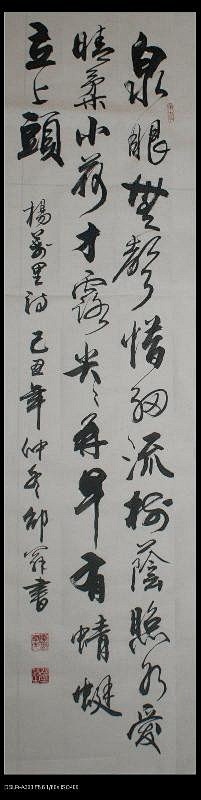 泉眼無聲惜細流樹蔭照水愛
晴柔小荷才露尖々角早有蜻蜓
立上頭
楊萬里詩 己丑年仲冬邵書
ISO400